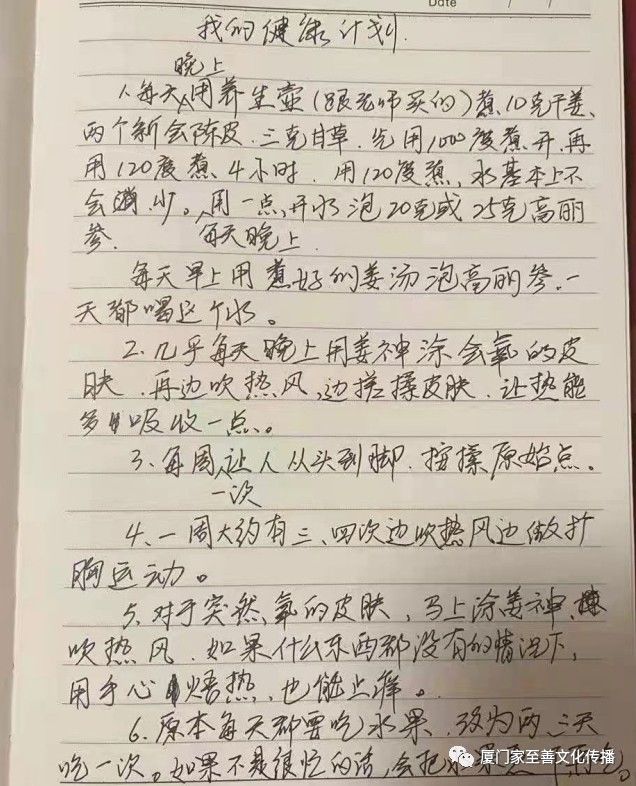 Date / /
我的健康计划.
晚上
1、每天用养生壶(跟老师买的)煮10克干姜、
两个新会陈皮.三克甘草.先用1000度煮开.再
用120度煮4小时.用120度煮,水基本上不
会消少。用一点开水泡20克或25克高丽
参. 每天晚上.
每天早上用煮好的姜汤泡高丽参.一
天都喝这个水。
2.几乎每天晚上用姜神涂会氧的皮
肤.再边吹热风,边搓揉皮肤.让热能
多吸收一点。
3、每周让人从头到脚.按揉原始点。
一次
4、一周大约有三、四次边吹热风边做扩
胸运动。
5、对于突然氧的皮肤,马上涂姜神、
吹热风.如果什么东西都没有的情况下,
用手心焐热,也能止痒。
6.原本每天都要吃水果.改为两、三天
吃一次。如果不是很忙的话,会把水果
厦门家至善文化传播